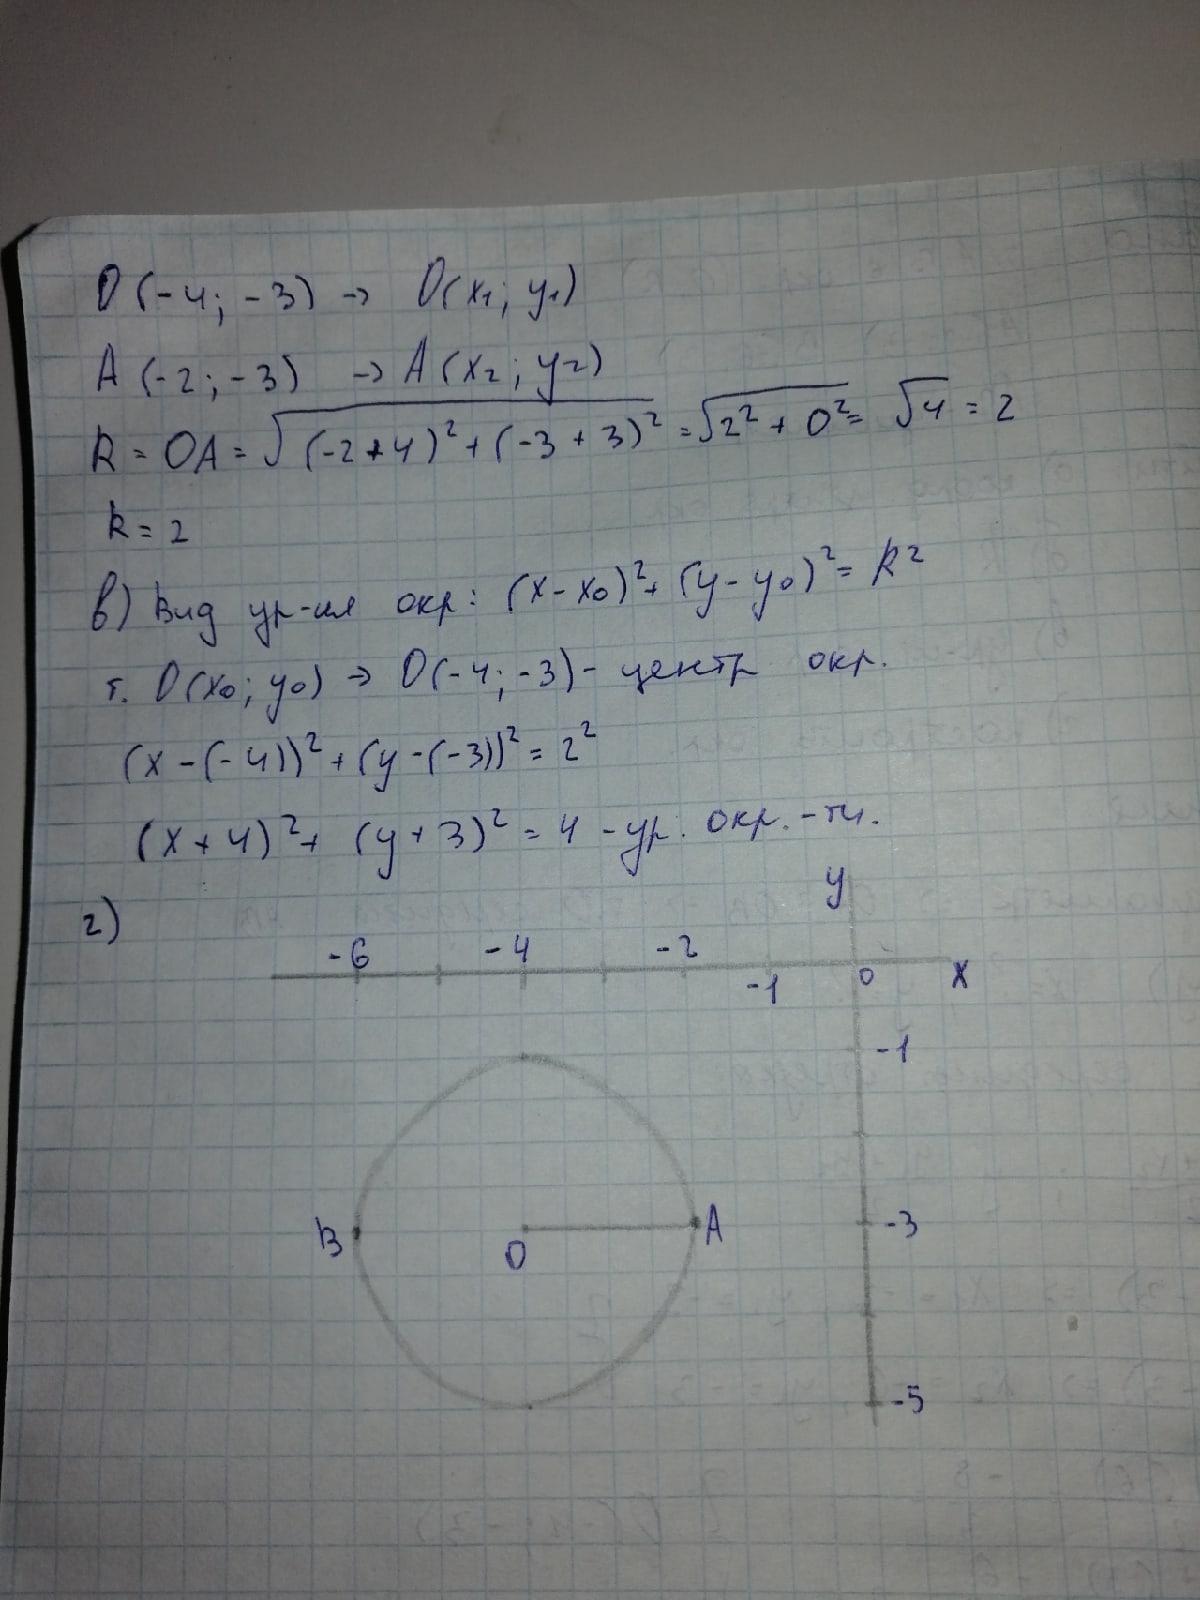 O(-4; -3) → O(x₁; y₁)
A(-2; -3) → A(x₂; y₂)
R = OA = √((-2+4)² + (-3+3)²) = √(2² + 0²) = √4 = 2
R = 2
в) Вид ур-ия окр: (x - x₀)² + (y - y₀)² = R²
т. O(x₀; y₀) → O(-4; -3) - центр окр.
(x - (-4))² + (y - (-3))² = 2²
(x + 4)² + (y + 3)² = 4 - ур. окр. - ти.
г)
y
-6 -4 -2
-1 0 x
-1
B O A -3
-5